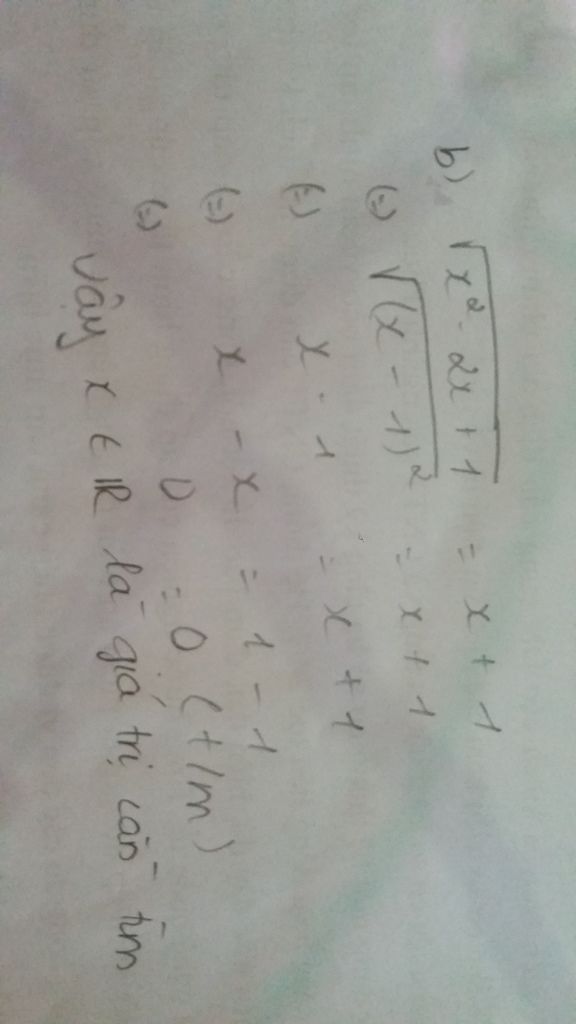 b) √x² - 2x + 1 = x + 1
(=) √(x - 1)² = x + 1
(=) x - 1 = x + 1
(=) x - x = 1 - 1
(=) 0 = 0 (t/m)
Vậy x ∈ R là giá trị cần tìm